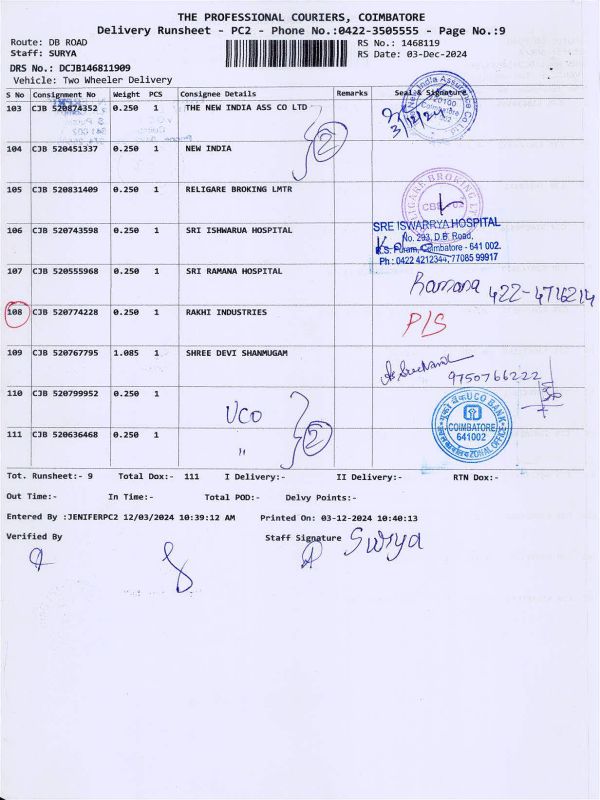 THE PROFESSIONAL COURIERS, COIMBATORE
Delivery Runsheet - PC2 - Phone No.:0422-3505555 - Page No.:9
Route: DB ROAD RS No.: 1468119
Staff: SURYA RS Date: 03-Dec-2024
DRS No.: DCJB146811909
Vehicle: Two Wheeler Delivery
S No Consignment No Weight PCS Consignee Details Remarks Seal & Signature
103 CJB 520874352 0.250 1 THE NEW INDIA ASS CO LTD
3/12/24
2
104 CJB 520451337 0.250 1 NEW INDIA
105 CJB 520831409 0.250 1 RELIGARE BROKING LMTR
106 CJB 520743598 0.250 1 SRI ISHWARUA HOSPITAL
SRE ISWARRYA HOSPITAL
No. 293, D.B. Road,
R.S. Puram, Coimbatore - 641 002.
Ph : 0422 4212344, 77085 99917
107 CJB 520555968 0.250 1 SRI RAMANA HOSPITAL
Ramana 422-4716214
108 CJB 520774228 0.250 1 RAKHI INDUSTRIES
P/S
109 CJB 520767795 1.085 1 SHREE DEVI SHANMUGAM
9750766222
110 CJB 520799952 0.250 1
UCO
111 CJB 520636468 0.250 1
" 2
UCO BANK
COIMBATORE
641002
ZONAL OFFICE
Tot. Runsheet:- 9 Total Dox:- 111 I Delivery:- II Delivery:- RTN Dox:-
Out Time:- In Time:- Total POD:- Delvy Points:-
Entered By :JENIFERPC2 12/03/2024 10:39:12 AM Printed On: 03-12-2024 10:40:13
Verified By Staff Signature Surya